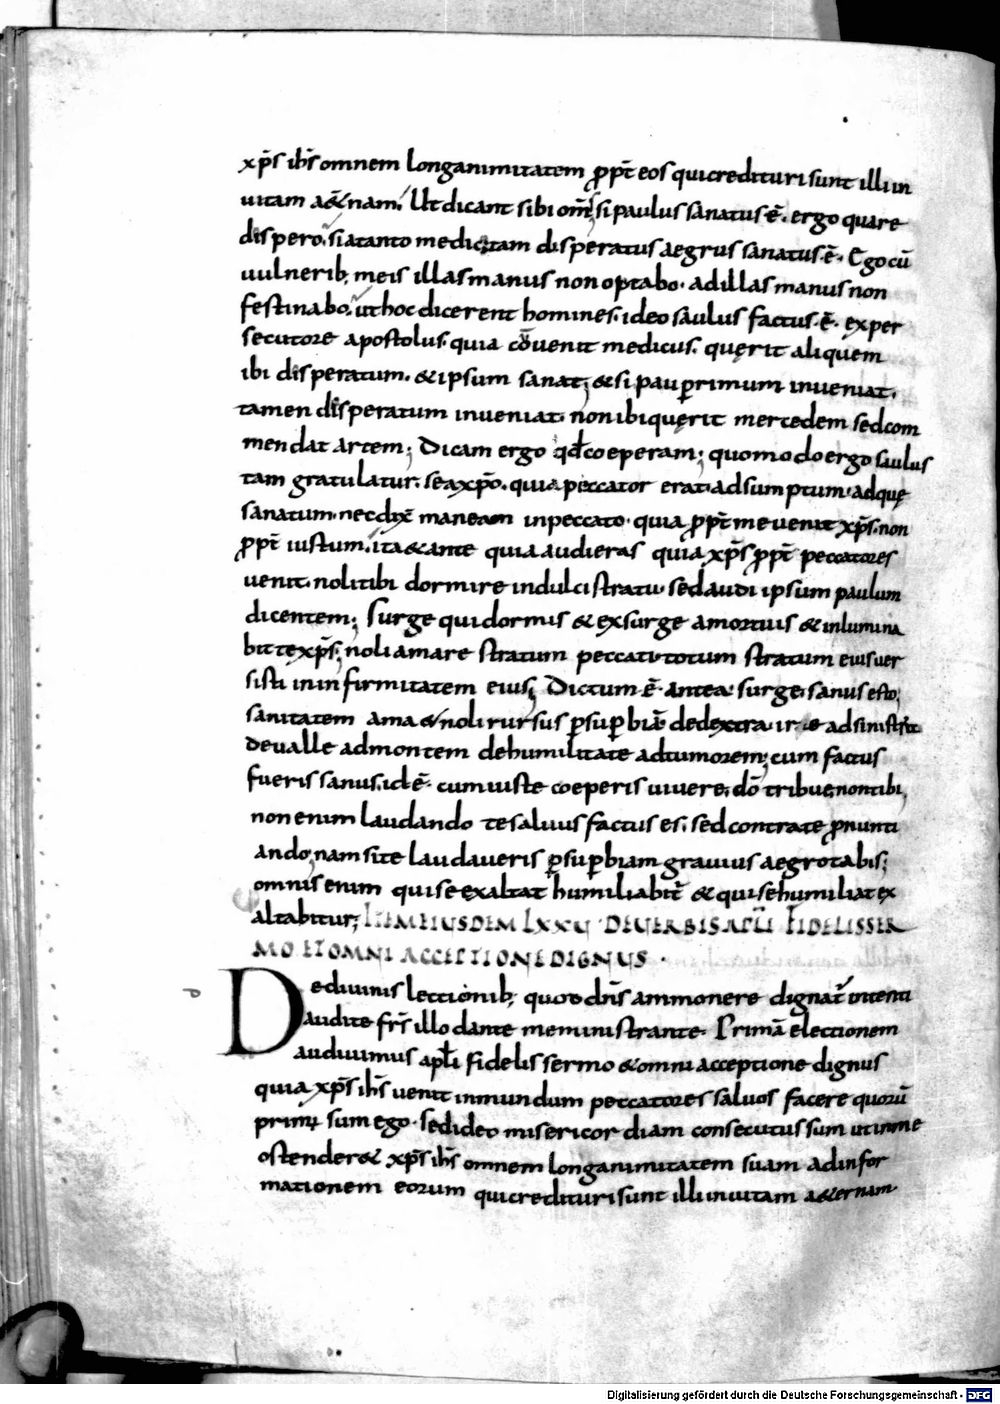 xp̄s ih̄s omnem longanimitatem ꝓpt̄ eos qui credituri sunt illi in
uitam a&̄nam. Ut dicant sibi om̄s si paulus sanatus ē. ergo quare
dispero. si a tanto medico tam disperatus aegrus sanatus ē. Ego cū
uulnerib; meis illas manus non optabo. ad illas manus non
festinabo. ut hoc dicerent homines. ideo saulus factus ē. ex per
secutore apostolus. quia cō uenit medicus. quęrit aliquem
ibi disperatum. & ipsum sanat; & si pauperrimum inueniat.
tamen disperatum inueniat. non ibi quęrit mercedem sed com
mendat artem; Dicam ergo qđ coeperam; quomodo ergo saulus
tam gratulatur. se a xp̄o. quia peccator erat. adsumptum. adquę
sanatum. nec dix̄ maneam in peccato. quia ꝓpt̄ me uenit xp̄s. non
ꝓpt̄ iustum. ita & ante quia audieras quia xp̄s ꝓpt̄ peccatores
uenit. noli tibi dormire in dulci stratu. sed audi ipsum paulum
dicentem; Surge qui dormis & exsurge a mortuis & inlumina
bit te xp̄s; noli amare stratum peccati. totum stratum eius uer
sisti in infirmitatem eius; Dictum ē. antea. surge. sanus esto;
sanitatem ama & noli rursus ꝑ suꝑbiā de dextra ire ad sinistrā
de ualle ad montem de humilitate ad tumorem; cum factus
fueris sanus. id ē. cum iuste coeperis uiuere. dō tribue. non tibi,
non enim laudando te saluus factus es. sed contra te ꝓnunti
ando. nam si te laudaueris ꝑ suꝑbiam grauius aegrotabis;
omnis enim qui se exaltat humiliabit̄ & qui se humiliat ex
altabitur; ITEM EIUSDEM LXXU DE UERBIS APLI FIDELIS SER
MO ET OMNI ACCEPTIONE DIGNUS.
De diuinis lectionib; quod dn̄s ammonere dignat̄ intenti
audite fr̄s illo dante me ministrante. Primā electionem
audiuimus apłi Fidelis sermo & omni acceptione dignus
quia xp̄s ih̄s uenit in mundum peccatores saluos facere quorū
primus sum ego. sed ideo misericordiam consecutus sum ut in me
ostender& xp̄s ih̄s omnem longanimitatem suam ad infor
mationem eorum qui credituri sunt illi in uitam a&ernam.
Digitalisierung gefördert durch die Deutsche Forschungsgemeinschaft - DFG